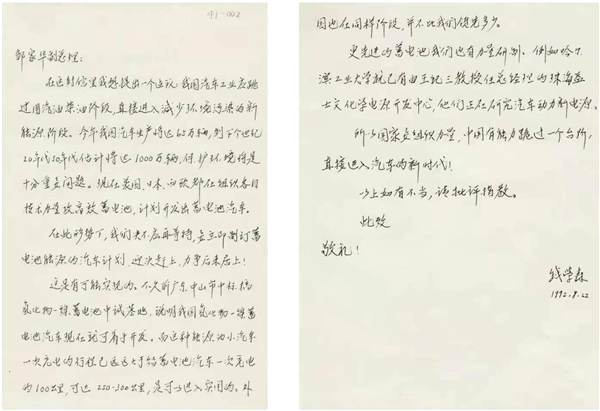 41-002
邹家华副总理：
在这封信里我想提出一个建议：我国汽车工业应跳
过用汽油柴油阶段，直接进入减少环境污染的新
能源阶段。今年我国汽车生产将达65万辆，到下个世纪
20年代30年代估计将达1000万辆，保护环境将是
十分重要问题。现在美国、日本、西欧都在组织各自
技术力量攻高效蓄电池，计划开发出蓄电池汽车。
在此形势下，我们决不应再等待，要立即制订蓄
电池能源的汽车计划，迎头赶上，力争后来居上！
这是有可能实现的。不久前广东中山市中标，搞
氢化物—镍蓄电池中试基地，说明我国氢化物—镍蓄
电池汽车现在就可着手开发。而这种能源的小汽车
一次充电的行程已远远大于铅蓄电池汽车一次充电
的100公里，可达250-300公里，是可以进入实用的。外
国也在同样阶段，并不比我们领先多少。
更先进的蓄电池我们也有力量研制。例如哈尔
滨工业大学就已有由王纪三教授任总经理的珠海益
士文化学电源开发中心，他们正在研究汽车动力新电源。
所以国家要组织力量，中国有能力跳过一个台阶，
直接进入汽车的新时代！
以上如有不当，请批评指教。
此致
敬礼！
钱学森
1992.8.22